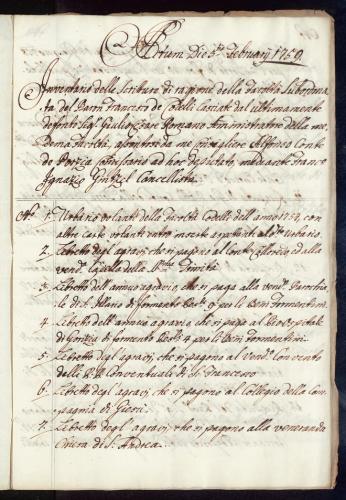 Die 3.^a Februarij 1759.
Inventario delle Scritture di ragione della Facoltà
ta del Baron Francesco de lasciate dal ultimamente
defonto Sig.^r Giulio Cesare Romano Aministratore della me
dema Facoltà, me Consigliere Alfonso Conte
de Porzia Comissario ad hoc deputato mediante Franc.^o
Ignazio Cancellista
N.^o 1. Urbario volante della Facoltà dell'anno 1754, con
altre carte volanti entro inserte spetante al d.^o Urbario.
2. Libretto degl'agravij che si pagano al Conte ed alla
vend.^a Capella della S.^ma Trinità
3. Libretto dell'annuo agravio, che si paga alla vend.^a Parochia
le di S. di formento per li Beni Formentini.
4. Libretto dell'annuo agravio che si paga al Hospitale
di Gorizia di formento 4 per li Beni Formentini.
5. Libretto degl'agravij, che si pagano al Vend.^o Convento
delli P.P. Conventuali di S. Francesco
6. Libretto degl'agravij che si pagano al Collegio della Com
pagnia di Giesù.
7. Libretto degl'agravij che si pagano alla veneranda
Chiesa di S. Andrea.